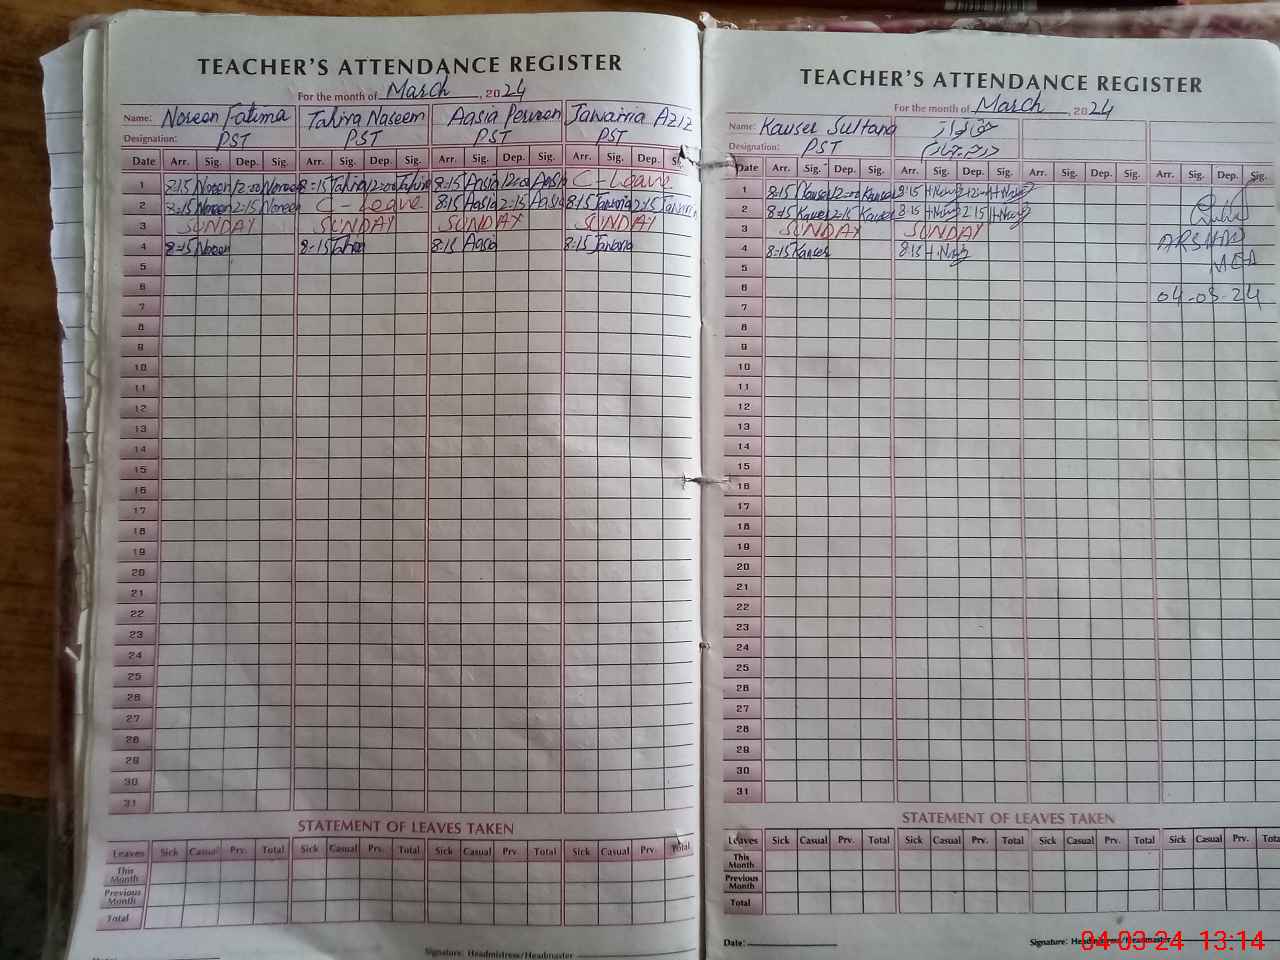 TEACHER'S ATTENDANCE REGISTER
For the month of March, 2024
Name: Noreen Fatima Tahira Naseem Aasia Perveen Jawairia Aziz
Designation: PST PST PST PST
Date Arr. Sig. Dep. Sig. Arr. Sig. Dep. Sig. Arr. Sig. Dep. Sig. Arr. Sig. Dep. Sig.
1 8:15 Noreen 12:00 Noreen 8:15 Tahira 12:00 Tahira 8:15 Aasia 12:00 Aasia C-Leave
2 8:15 Noreen 2:15 Noreen C-Leave 8:15 Aasia 2:15 Aasia 8:15 Jawairia 2:15 Jawairia
3 SUNDAY SUNDAY SUNDAY SUNDAY
4 8:15 Noreen 8:15 Tahira 8:15 Aasia 8:15 Jawairia
5
6
7
8
9
10
11
12
13
14
15
16
17
18
19
20
21
22
23
24
25
26
27
28
29
30
31
STATEMENT OF LEAVES TAKEN
Leaves Sick Casual Prv. Total Sick Casual Prv. Total Sick Casual Prv. Total Sick Casual Prv. Total
This Month
Previous Month
Total
Signature: Headmistress/Headmaster
TEACHER'S ATTENDANCE REGISTER
For the month of March, 2024
Name: Kauser Sultana
Designation: PST
Date Arr. Sig. Dep. Sig. Arr. Sig. Dep. Sig. Arr. Sig. Dep. Sig. Arr. Sig. Dep. Sig.
1 8:15 Kauser 12:00 Kauser 8:15 12:00
2 8:15 Kauser 2:15 Kauser 8:15 2:15
3 SUNDAY SUNDAY
4 8:15 Kauser 8:15
ARSHAD
MEA
04-03-24
5
6
7
8
9
10
11
12
13
14
15
16
17
18
19
20
21
22
23
24
25
26
27
28
29
30
31
STATEMENT OF LEAVES TAKEN
Leaves Sick Casual Prv. Total Sick Casual Prv. Total Sick Casual Prv. Total Sick Casual Prv. Total
This Month
Previous Month
Total
Date: Signature: Headmistress/Headmaster
04-03-24 13:14